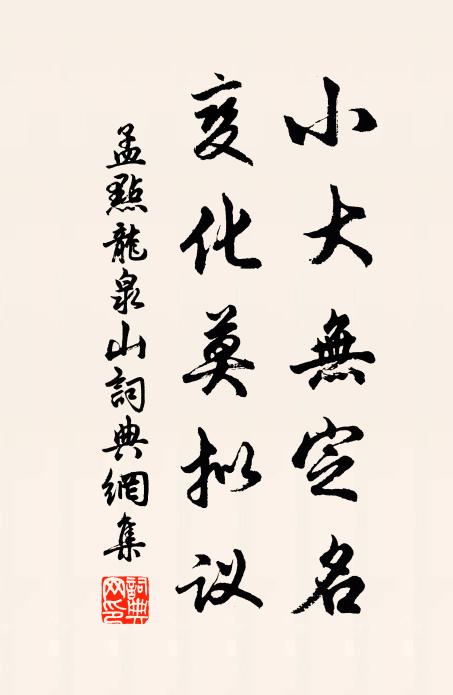 小大無定名
变化莫拟议
孟點龍泉山詞典網集
詞典网印